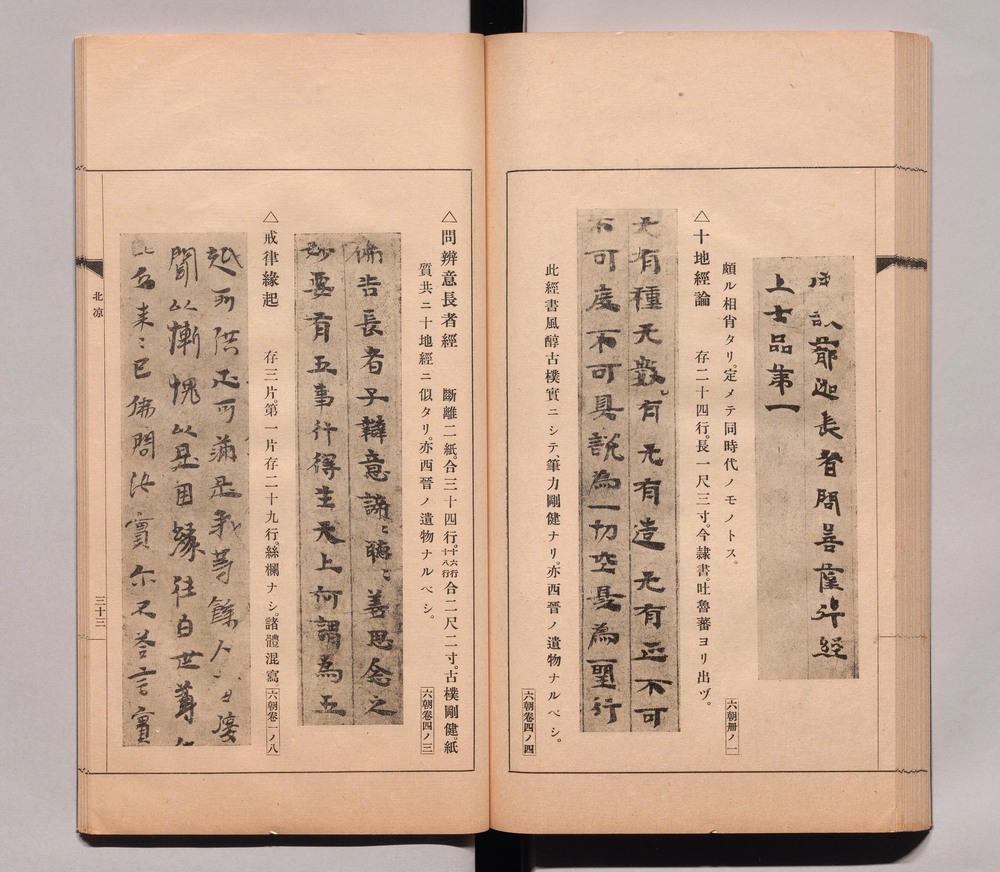 爺迦長者問菩薩
上士品第一
頗ル相肖タリ。定メテ同時代ノモノトス。
六朝册ノ一
△十地經論　存二十四行。長一尺三寸。今隷書。吐魯蕃ヨリ出ヅ。
无有種无數有无有造无有正不可
不可度不可具說為一切空是為聖行
此經書風醇古樸實ニシテ筆力剛健ナリ。亦西晉ノ遺物ナルベシ。
六朝卷四ノ四
△問辨意長者經　斷離二紙。合三十四行。十六行十八行合二尺二寸。古樸剛健。紙
質共ニ十地經ニ似タリ。亦西晉ノ遺物ナルベシ。
六朝卷四ノ三
佛告長者子辯意諦〻聽〻善思念之
妙要有五事行得生天上何謂為五
△戒律緣起　存三片。第一片存二十九行。絲欄ナシ。諸體混寫
六朝卷一ノ八
所供正可滿足我等餘人
聞以慚愧以是因緣往白世尊
來〻已佛問汝實尔不答言實
北凉
三十三